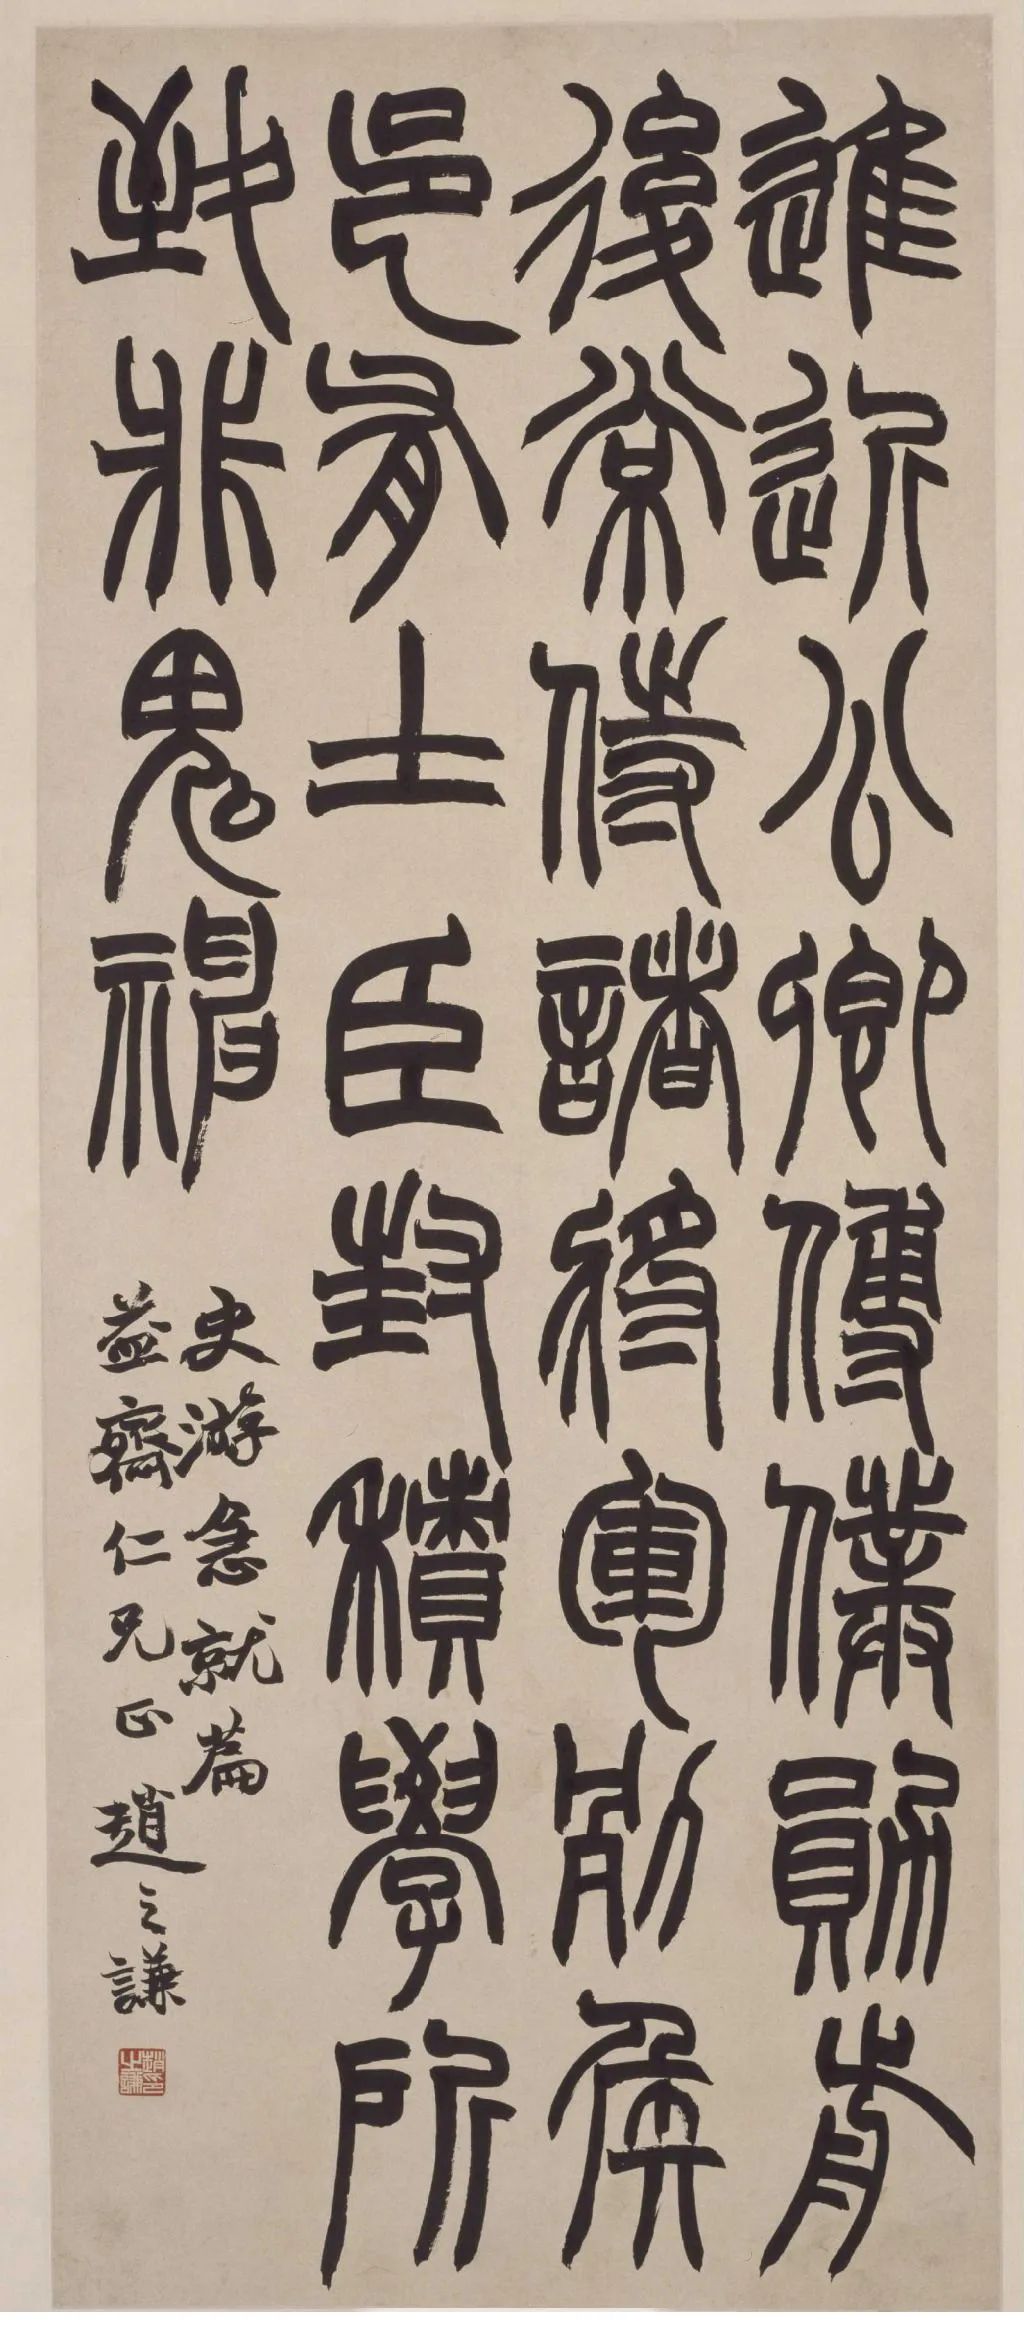 進近公卿傅僕勛前
後常侍諸將軍列侯
邑有土臣封積學所
致非鬼神
史游急就篇
益齋仁兄正 趙之謙
趙之謙印